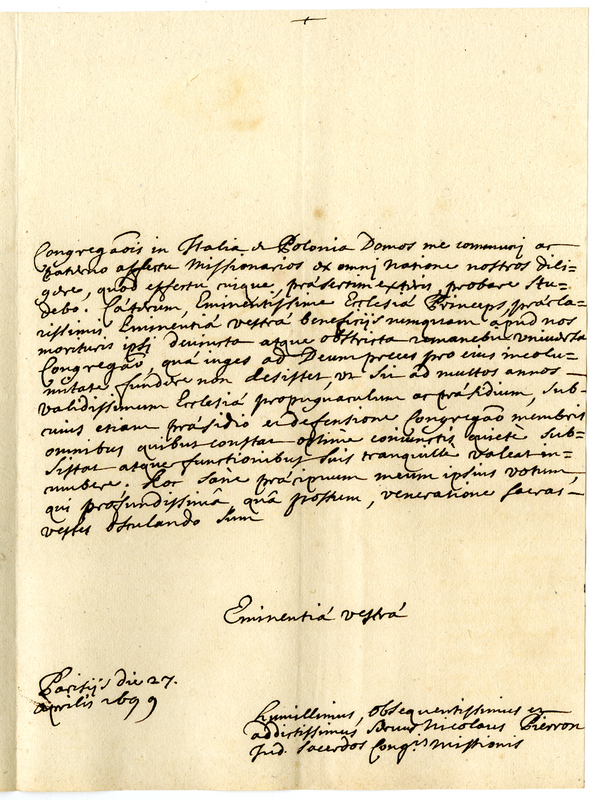 Congregãois in Italia & Polonia Domos me communi ac
paterno affectu Missionarios ex omni natione nostros dili=
gere, quod effectu cuique, præsertim exteris, probare stu=
debo. Cæterum, Eminentissime Ecclesiæ Princeps, præcla=
rissimis Eminentiæ vestræ beneficijs nunquam apud nos
morituris ipsi devincta atque obstricta remanebit universa
Congregão, quæ iuges ad Deum preces pro eius incolu=
mitate fundere non desistet, ut sit ad multos annos
validissimum Ecclesiæ propugnaculum ac præsidium, sub
cuius etiam præsidio et defensione Congregão membris
omnibus quibus constat optime coniunctis quietè sub=
sistat atque functionibus suis tranquille valeat in=
cumbere. Hoc sanè præcipuum meum ipsius votum,
qui profundissimâ, quâ possum, veneratione sacras
vestes osculando sum
Eminentiæ vestræ
Parisijs die 27.
Aprilis 1699
humillimus, obsequentissimus et
addictissimus servus Nicolaus Pierron
Ind. sacerdos Congnis Missionis